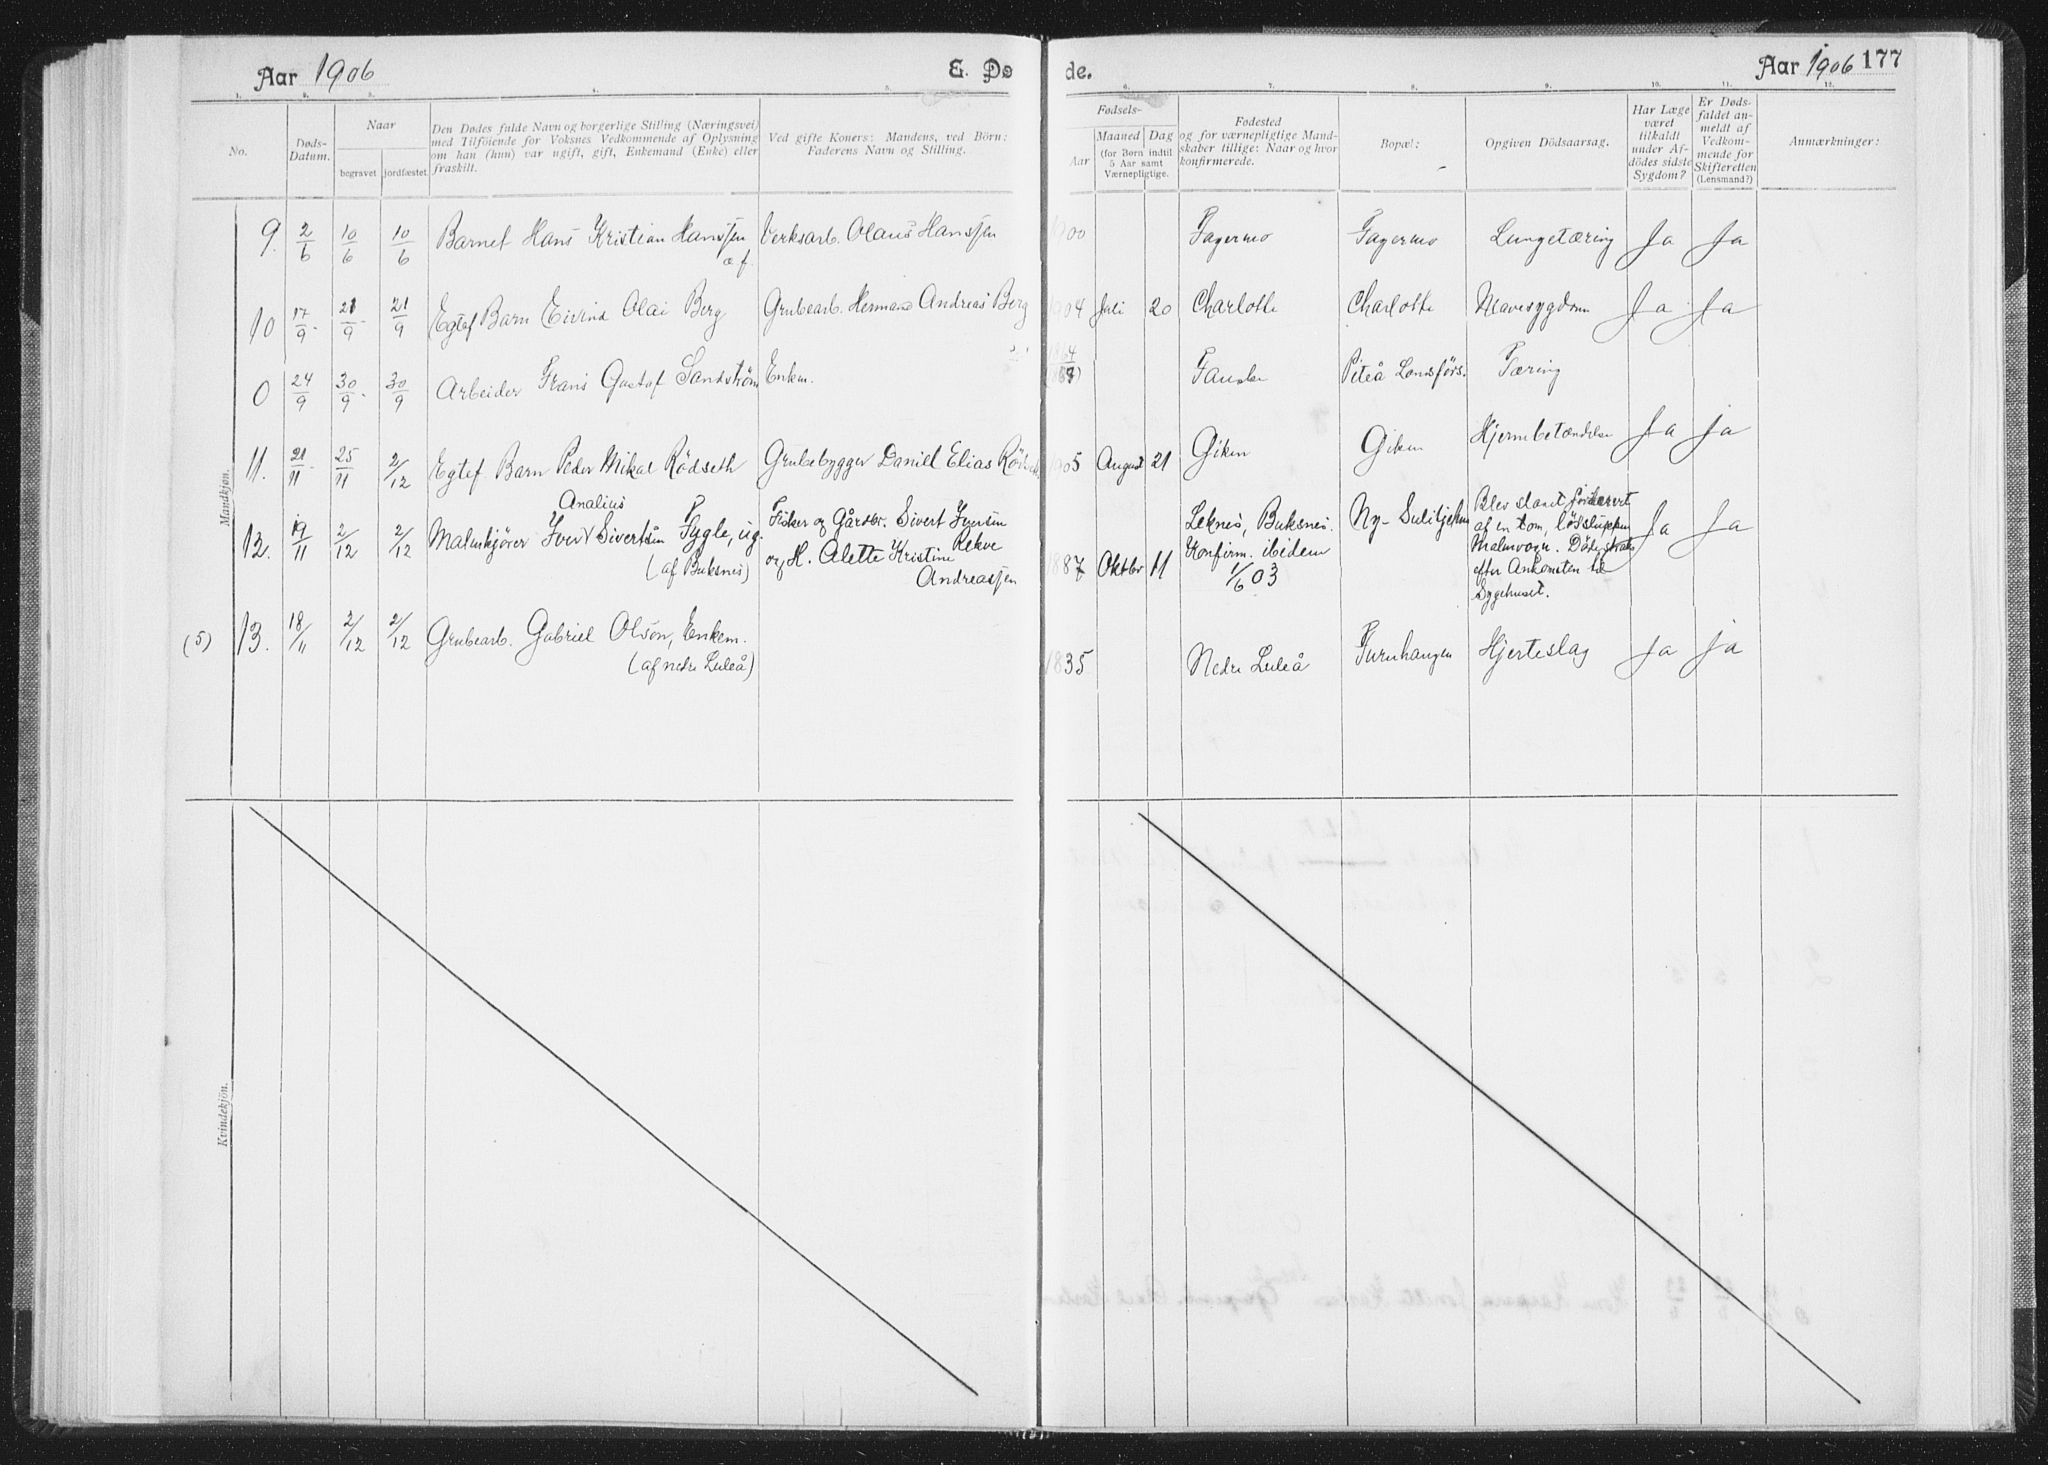 Aar 1906
E. Do
de.
Aar 1906 177
1. 2. 3. 4. 5.
6. 7. 8. 9. 10. 11. 12.
No.
Døds-
Datum.
Naar
begravet
jordfæstet
Den Dødes fulde Navn og borgerlige Stilling (Næringsvei)
med Tilføiende for Voksnes Vedkommende af Oplysning
om han (hun) var ugift, gift, Enkemand (Enke) eller
fraskilt.
Ved gifte Koner: Mandens, ved Börn:
Faderens Navn og Stilling.
Fødsels-
Aar
Maaned
Dag
(for Børn indtil
5 Aar samt
Værnepligtige.
Fødested
og for værnepligtige Mand-
skaber tillige: Naar og hvor
konfirmerede.
Bopæl:
Opgiven Dödsaarsag.
Har Læge
været
tilkaldt
under Af-
dödes sidste
Sygdom?
Er Døds-
faldet an-
meldt af
Vedkom-
mende for
Skifteretten
(Lensmand?)
Anmærkninger:
Mandkjøn.
9. 2/6 10/6 10/6 Barnet Hans Kristian Hanssen Verksarb. Olaus Hanssen 1900 Fagermo Fagermo Lungetæring Ja Ja
a.f.
10 17/9 21/9 21/9 Egtef Barn Eivind Olai Berg Grubearb. Herman Andreas Berg 1904 Juli 20 Charlotte Charlotte Mavesygdom Ja Ja
0 24/9 30/9 30/9 Arbeider Frans Gustaf Sandström Enkm. 1864 Fauske Piteå Landsförs. Tæring
11. 21/11 25/11 2/12 Egtef Barn Peder Mikal Rödseth Grubebygger Daniel Elias 1905 August 21 Giken Giken Hjernbetændelse Ja ja
Analius
12. 19/11 2/12 2/12 Malmkjører Iver Sivertsen Fygle, ug.
(af Buksnes)
Fisker og Gårdbr. Sivert Iversen
Rekve
og H. Alette Kristine
Andreassen
1887 Oktbr 11
Leknes, Buksnes.
Konfirm. ibidem
1/6 03
Ny-Sulitjelma
Blev slaaet forkvert
af en tom, lösslupen
Malmvogn. Döde straks
efter Ankomsten til
Sygehuset.
Ja Ja
(5) 13. 18/11 2/12 2/12 Grubearb. Gabriel Olson, Enkem.
(af nedre Luleå)
1835 Nedre Luleå Furuhaugen Hjerteslag Ja ja
Kvindekjön.